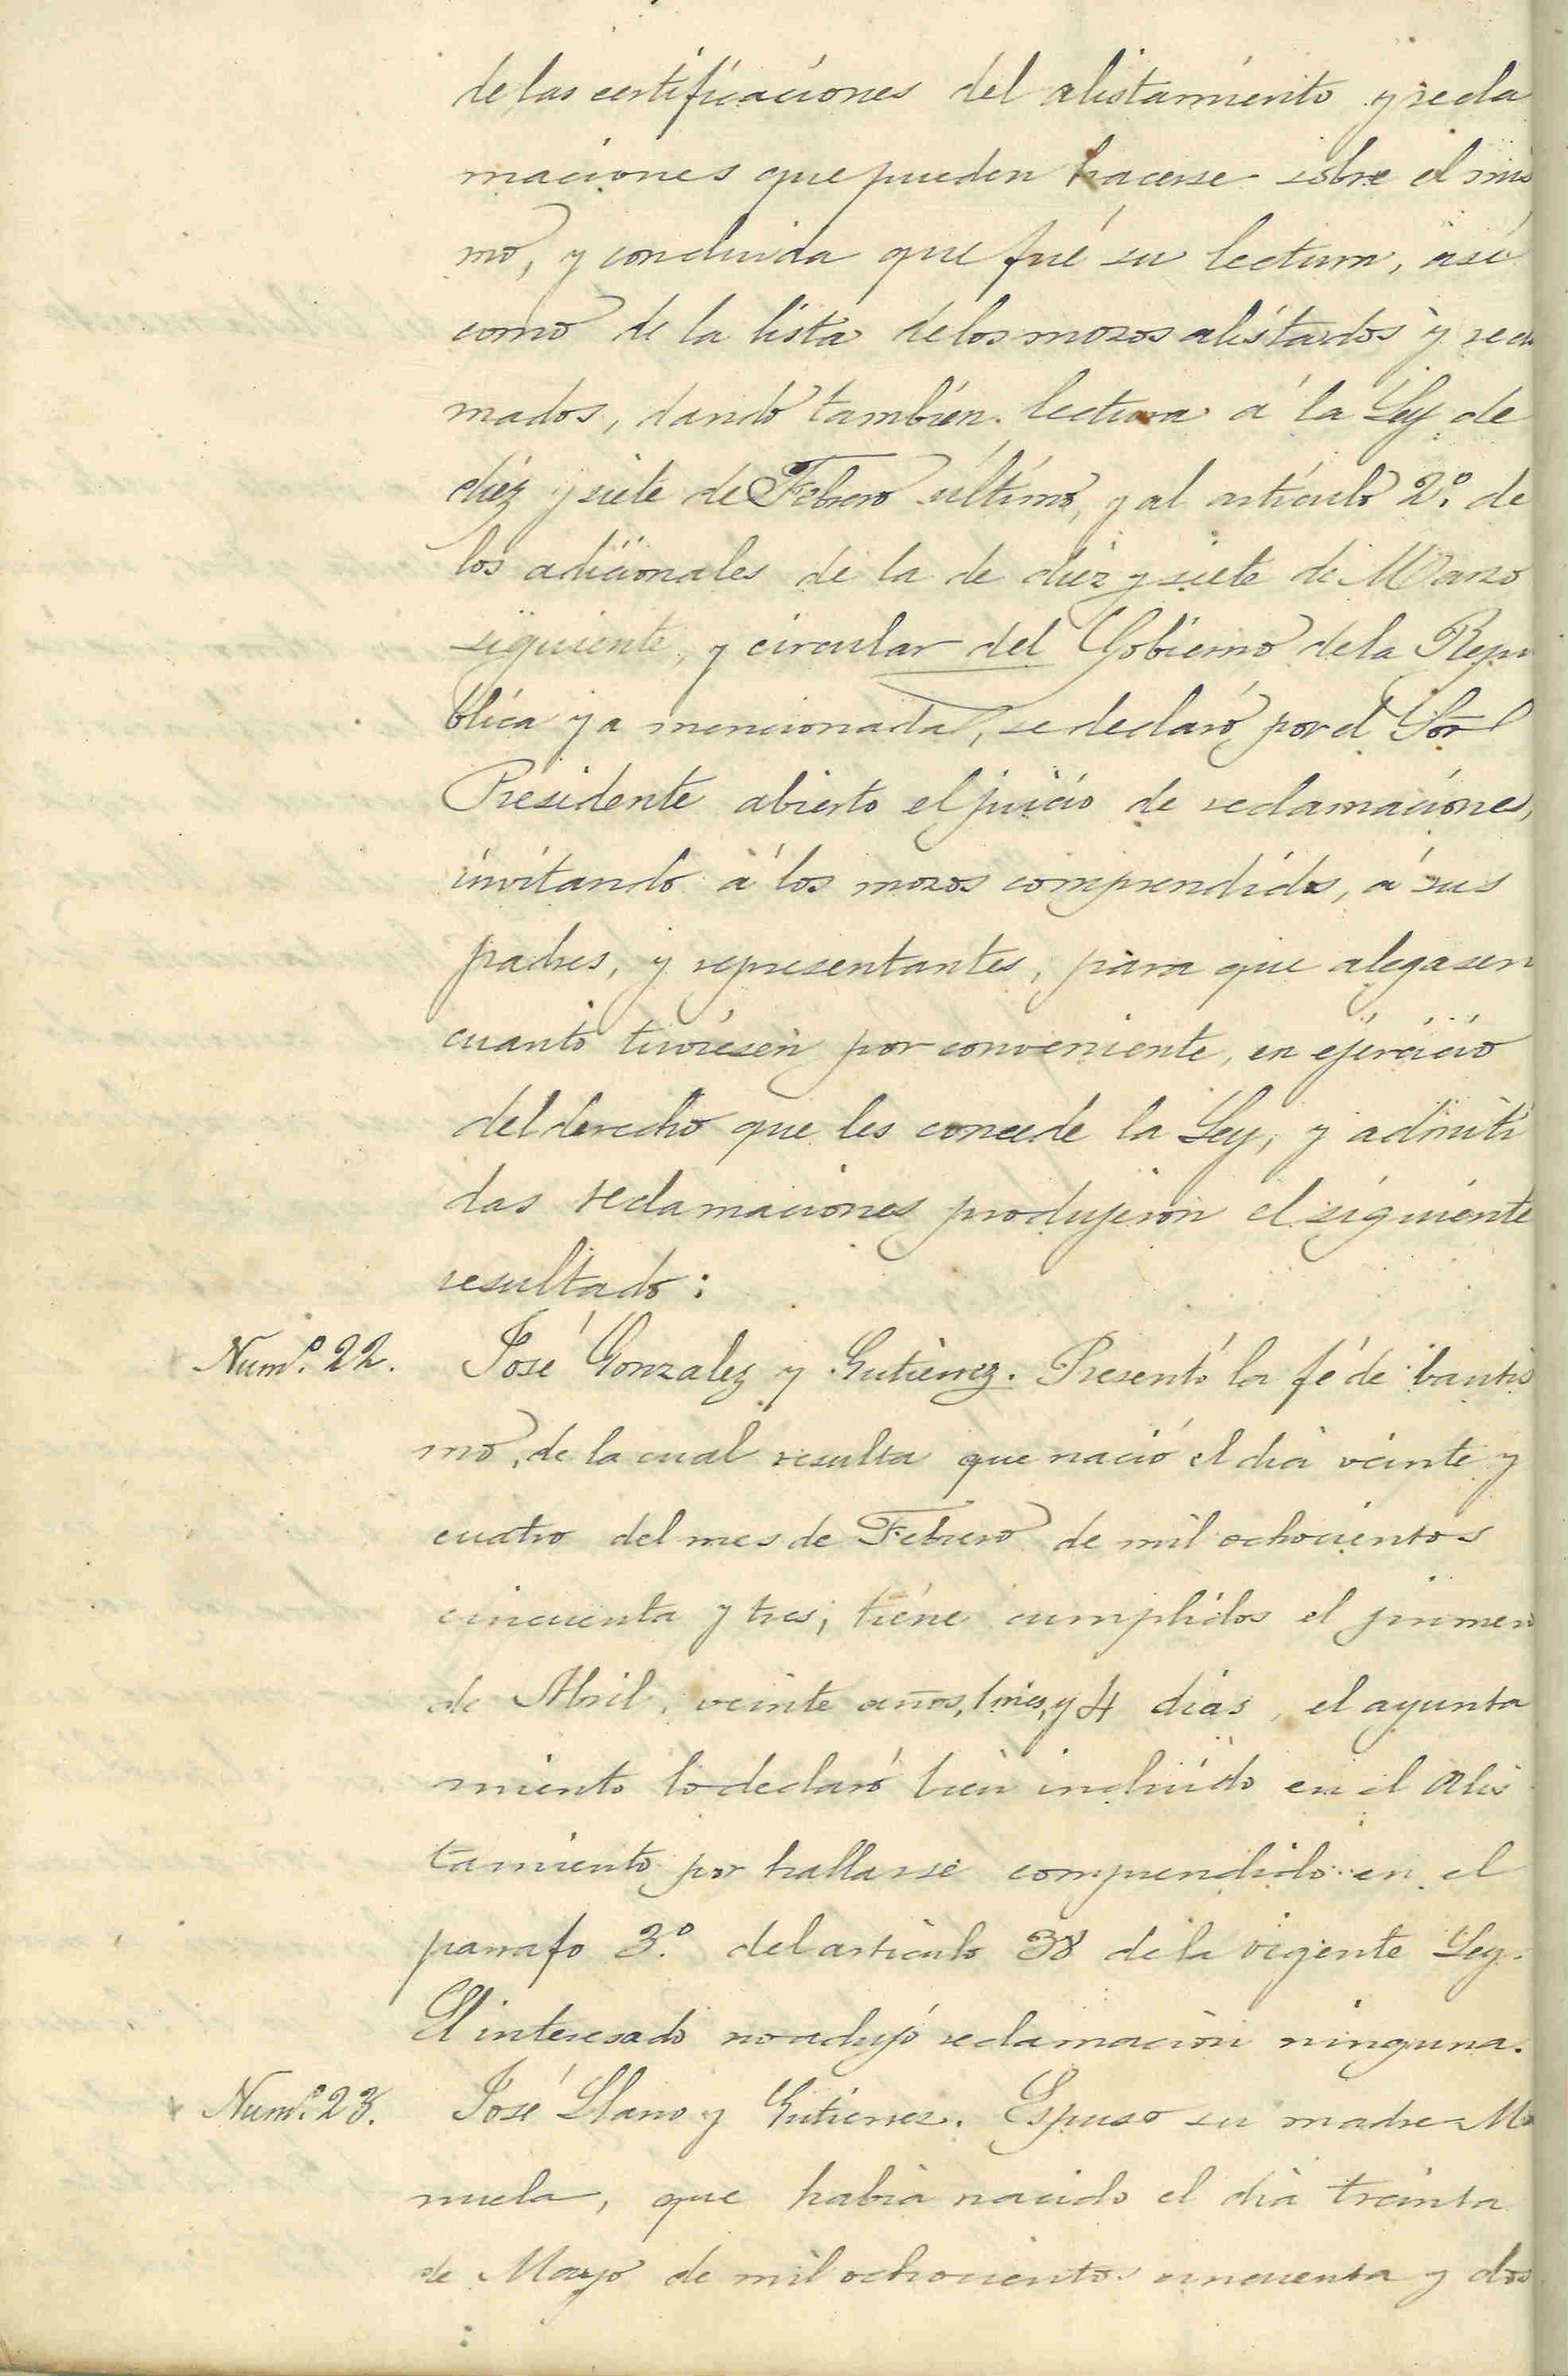 de las certificaciones del alistamiento y recla
maciones que pueden hacerse sobre el mis
mo, y concluida que fué su lectura, así
como de la lista de los mozos alistados y recla
mados, dando también lectura á la Ley de
diéz y siete de Febrero último, y al artículo 2.º de
los adicionales de la de diez y siete de Marzo
siguiente, y circular del Gobierno de la Repu
blica ya mencionada, se declaró por el Sor
Presidente abierto el juicio de reclamaciones,
invitando á los mozos comprendidos, á sus
padres, y representantes, para que alegasen
cuanto tuviesen por conveniente, en ejercicio
del derecho que les concede la Ley, y admiti
das reclamaciones produjeron el siguiente
resultado:
Numº. 22. José Gonzalez y Gutierrez. Presentó la fé de bautis
mo, de la cual resulta que nació el dia veinte y
cuatro del mes de Febrero de mil ochocientos
cincuenta y tres, tiene cumplidos el primero
de Abril, veinte años, 1 mes, y 4 dias, el ayunta
miento lo declaró bien incluido en el Alis
tamiento por hallarse comprendido en el
parrafo 3.º del articulo 38 de la vigente Ley.
El interesado no adujó reclamación ninguna.
Numº. 23. José Llano y Gutierrez. Espuso su madre Ma
nuela, que habia nacido el dia treinta
de Mayo de mil ochocientos cincuenta y dos